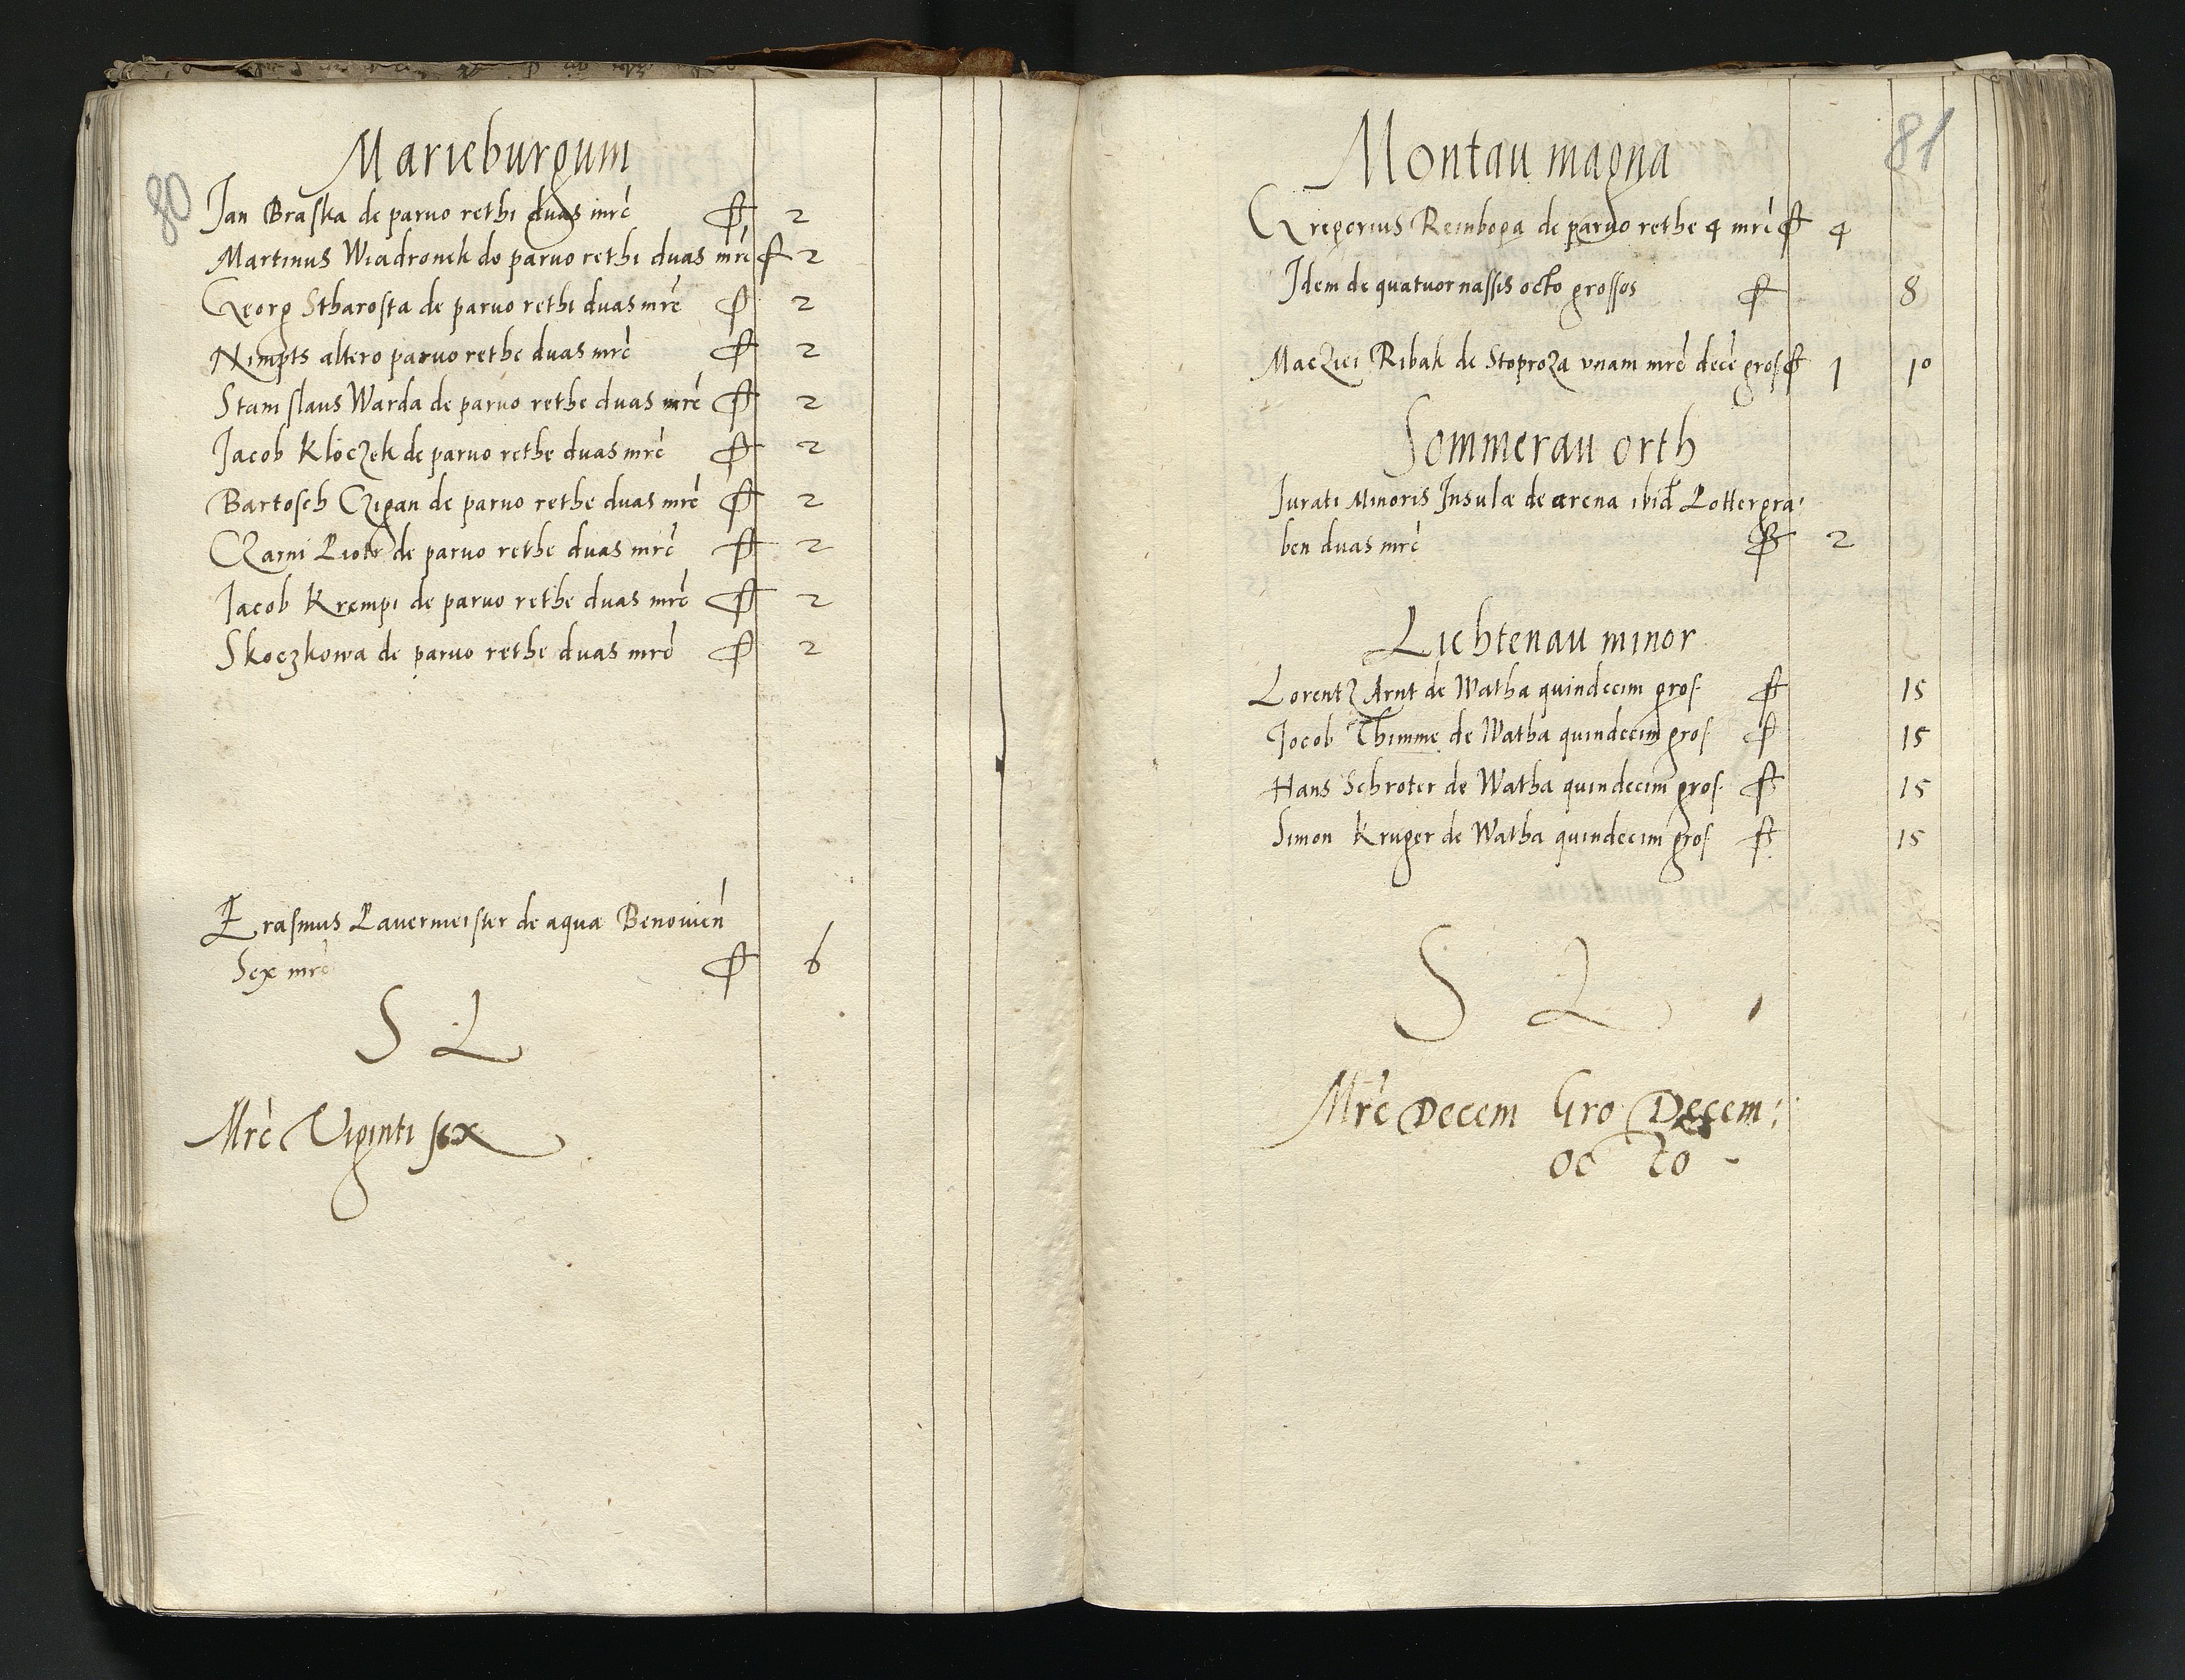 80
Marieburgum
Jan Braska de paruo rethi duas mrc ƒt 2
Martinus Wiadronek de paruo rethi duas mrc ƒt 2
Georg Stharosta de paruo rethi duas mrc ƒt 2
Nimpts altero paruo rethe duas mrc ƒt 2
Stanislaus Warda de paruo rethe duas mrc ƒt 2
Jacob Kloczek de paruo rethe duas mrc ƒt 2
Bartosch Czigan de paruo rethe duas mrc ƒt 2
Czarni Piotr de paruo rethe duas mrc ƒt 2
Jacob Krempi de paruo rethe duas mrc ƒt 2
Skoczkowa de paruo rethe duas mrc ƒt 2
Erasmus Pauermeister de aqua Benouien
Sex mrc ƒt 6
S L
Mrc Viginti sex
81
Montau magna
Gregorius Reinboga de paruo rethe 4 mrc ƒt 4
Idem de quatuor nassis octo grossos ƒt 8
Macziei Ribak de Stoproza vnam mrc dece gros ƒt 1 10
Sommerau orth
Jurati Minoris Insulæ de arena ibid Lottergra:
ben duas mrc ƒt 2
Lichtenau minor
Lorentz Arnt de Watha quindecim gros. ƒt 15
Jocob Thimme de Watha quindecim gros. ƒt 15
Hans Schroter de Watha quindecim gros. ƒt 15
Simon Kruger de Watha quindecim gros ƒt 15
S L
Mrc Decem Gro Decem:
octo